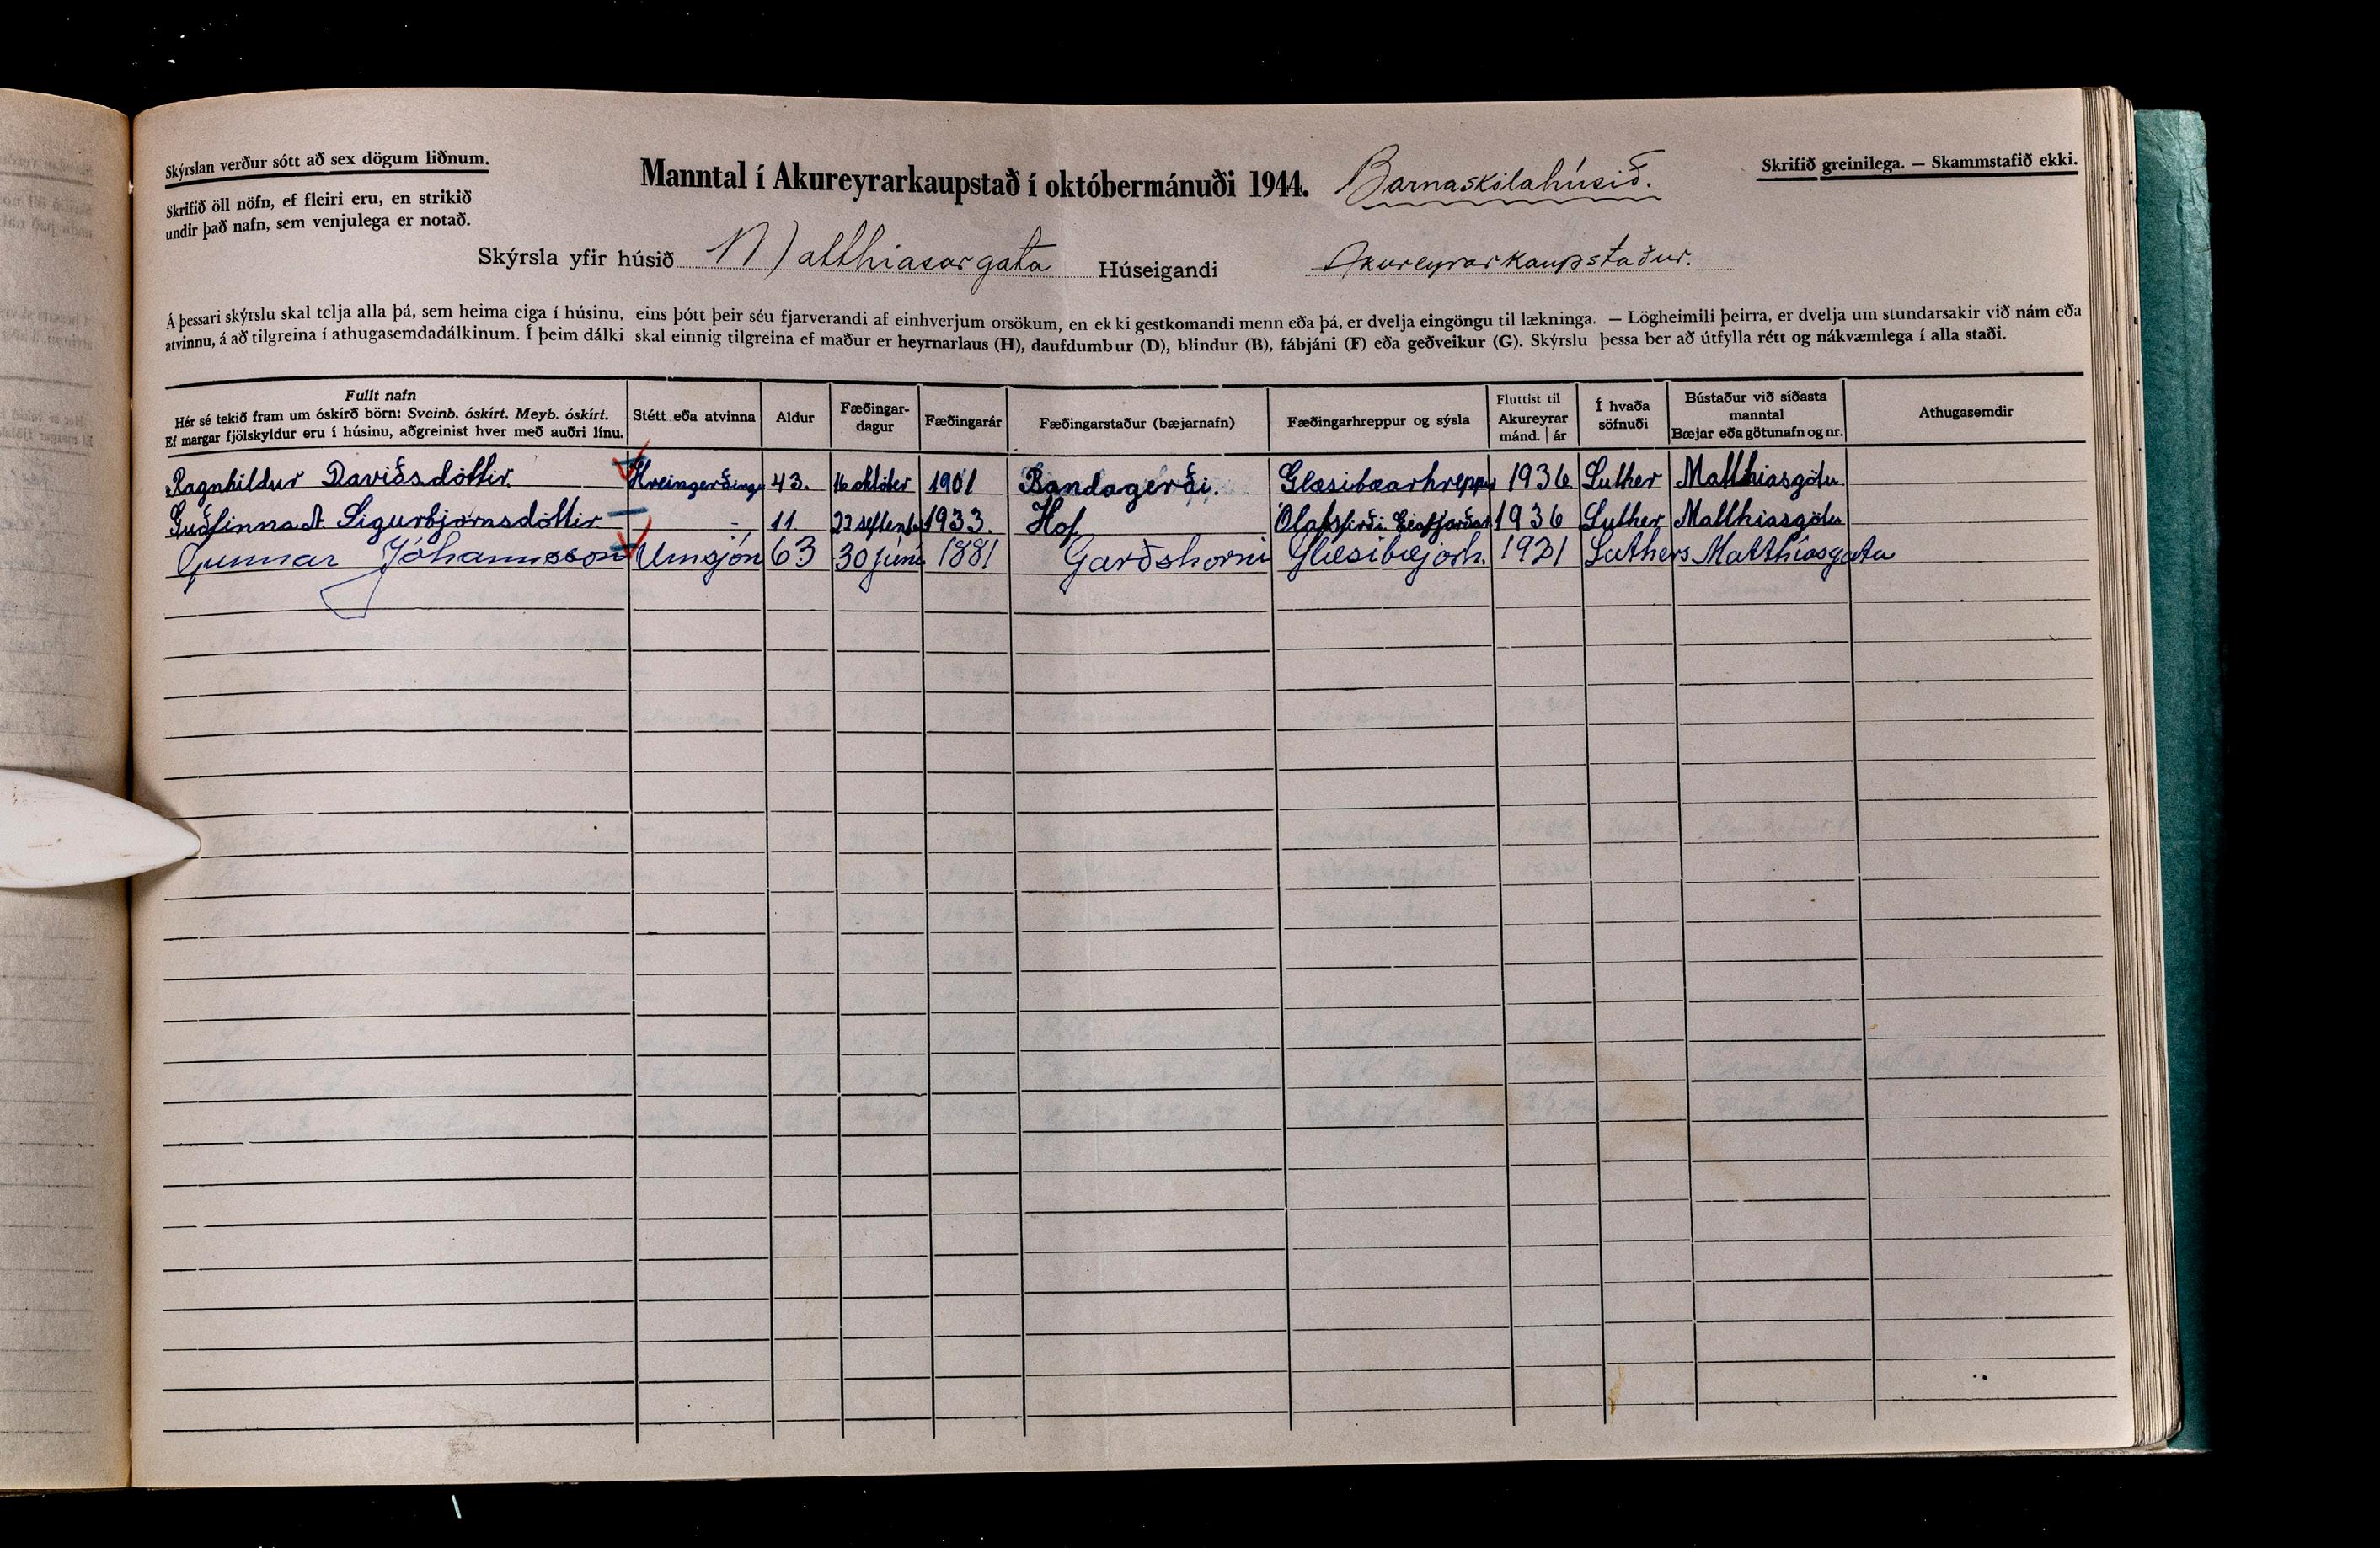 Skýrslan verður sótt að sex dögum liðnum.
Skrifið öll nöfn, ef fleiri eru, en strikið
undir það nafn, sem venjulega er notað.
Manntal í Akureyrarkaupstað í októbermánuði 1944. Barnaskólahúsið.
Skrifið greinilega. — Skammstafið ekki.
Skýrsla yfir húsið Matthiasargata Húseigandi Akureyrarkaupstaður.
Á þessari skýrslu skal telja alla þá, sem heima eiga í húsinu, eins þótt þeir séu fjarverandi af einhverjum orsökum, en ekki gestkomandi menn eða þá, er dvelja eingöngu til lækninga. — Lögheimili þeirra, er dvelja um stundarsakir við nám eða
atvinnu, á að tilgreina í athugasemdadálkinum. Í þeim dálki skal einnig tilgreina ef maður er heyrnarlaus (H), daufdumbur (D), blindur (B), fábjáni (F) eða geðveikur (G). Skýrslu þessa ber að útfylla rétt og nákvæmlega í alla staði.
Fullt nafn
Hér sé tekið fram um óskírð börn: Sveinb. óskírt. Meyb. óskírt.
Ef margar fjölskyldur eru í húsinu, aðgreinist hver með auðri línu.
Stétt eða atvinna
Aldur
Fæðingar-
dagur
Fæðingarár
Fæðingarstaður (bæjarnafn)
Fæðingarhreppur og sýsla
Fluttist til
Akureyrar
mánd. | ár
Í hvaða
söfnuði
Bústaður við síðasta
manntal
Bæjar eða götunafn og nr.
Athugasemdir
Ragnhildur Davíðsdóttir Hreingerðinga 43. 16 október 1901 Bandagerði. Glæsibæarhreppu 1936 Luther Matthiasgötu
Guðfinna Sigurbjörnsdóttir - 11. 22 septemb 1933. Hof Olafsfirði 1936 Luther Matthiasgötu
Gunnar Jóhannsson Umsjón 63 30 júní 1881 Garðshorni Glæsibæjarh. 1921 Luthers Matthíasgata